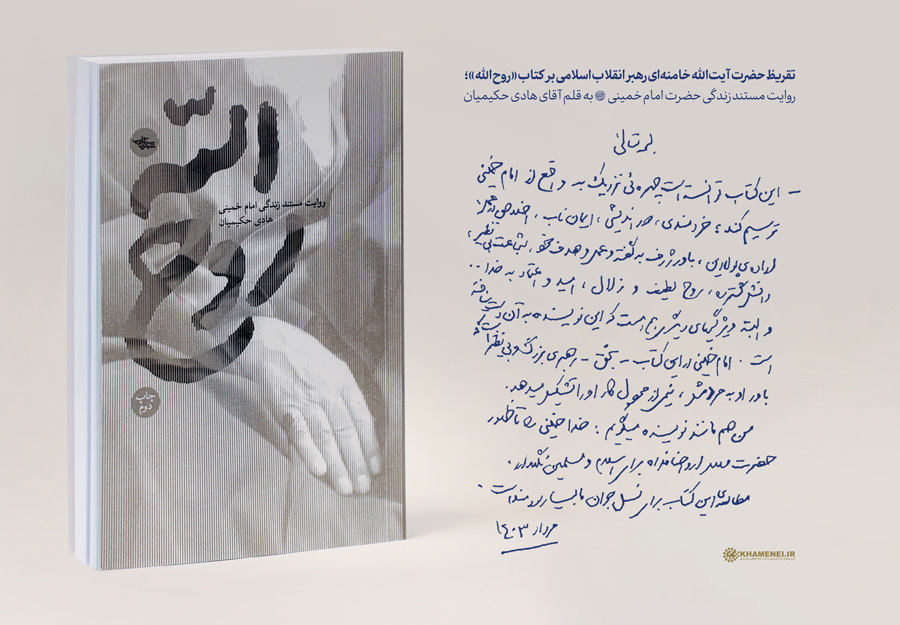 روح الله
روایت مستند زندگی امام خمینی
هادی حکیمیان
چاپ
دوم
تقریظ حضرت آیت‌الله خامنه‌ای رهبر انقلاب اسلامی بر کتاب «روح الله»؛
روایت مستند زندگی حضرت امام خمینی به قلم آقای هادی حکیمیان
بسمه تعالی
– این کتاب توانسته است چهره‌ئی نزدیک به واقع از امام خمینی
ترسیم کند؛ خردمندی، دوراندیشی، ایمان ناب، اخلاص در عمل،
اراده‌ی پولادین، باور ژرف به گفته و عمل و هدف خود، شجاعت بی‌نظیر،
دانش گسترده، روح لطیف و زلال، امید و اعتماد به خدا...
و البته ویژگیهای دیگری هم است که این نویسنده به آن دست نیافته
است. امام خمینی در این کتاب – بحق – رهبری بزرگ و بی‌نظیر است که
باور او به مردمش، نیمی از محصول کار او را تشکیل میدهد.
من هم مانند نویسنده میگویم: خدا خمینی را تا ظهور
حضرت مهدی ارواحنافداه برای اسلام و مسلمین نگهدارد.
مطالعه‌ی این کتاب برای نسل جوان ما بسیار سودمند است.
مرداد ۱۴۰۳
KHAMENEI.IR